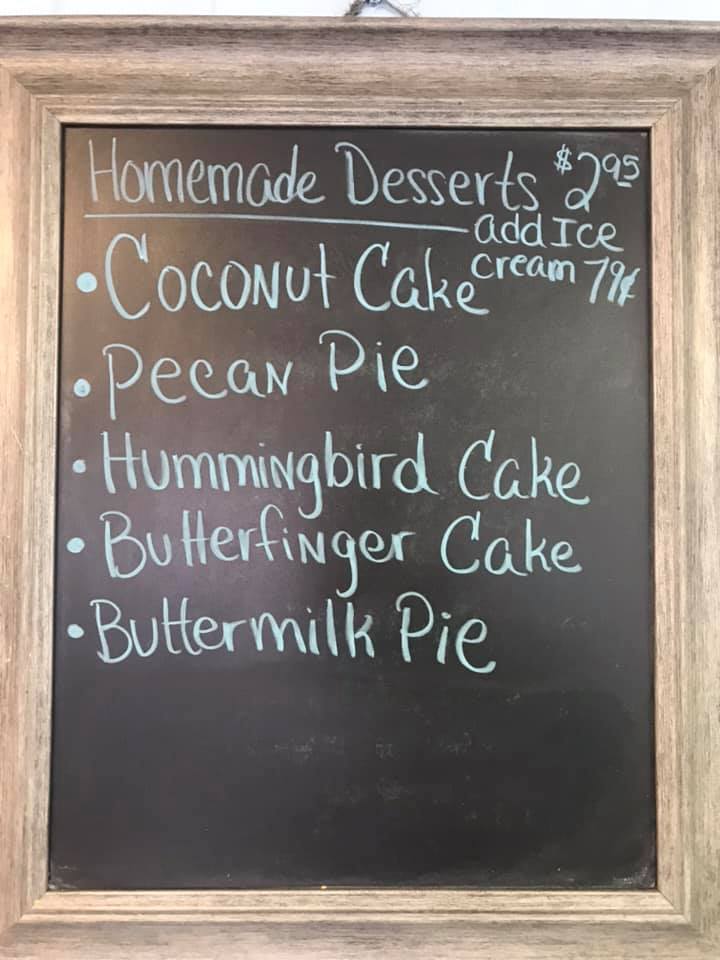 Homemade Desserts $2.95
add Ice
cream 79¢
• Coconut Cake
• Pecan Pie
• Hummingbird Cake
• Butterfinger Cake
• Buttermilk Pie